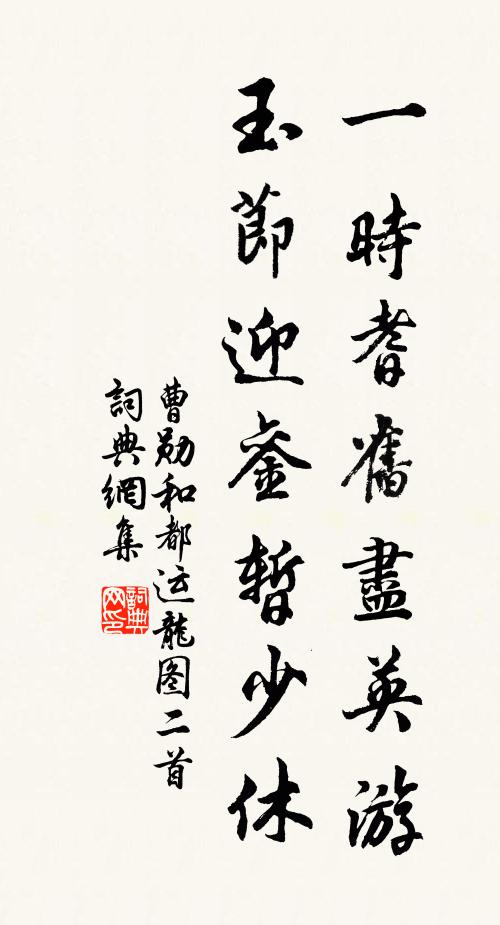 一時耆舊盡英游
玉節迎銮暫少休
曹勛和都运龍图二首
詞典網集
詞典网印